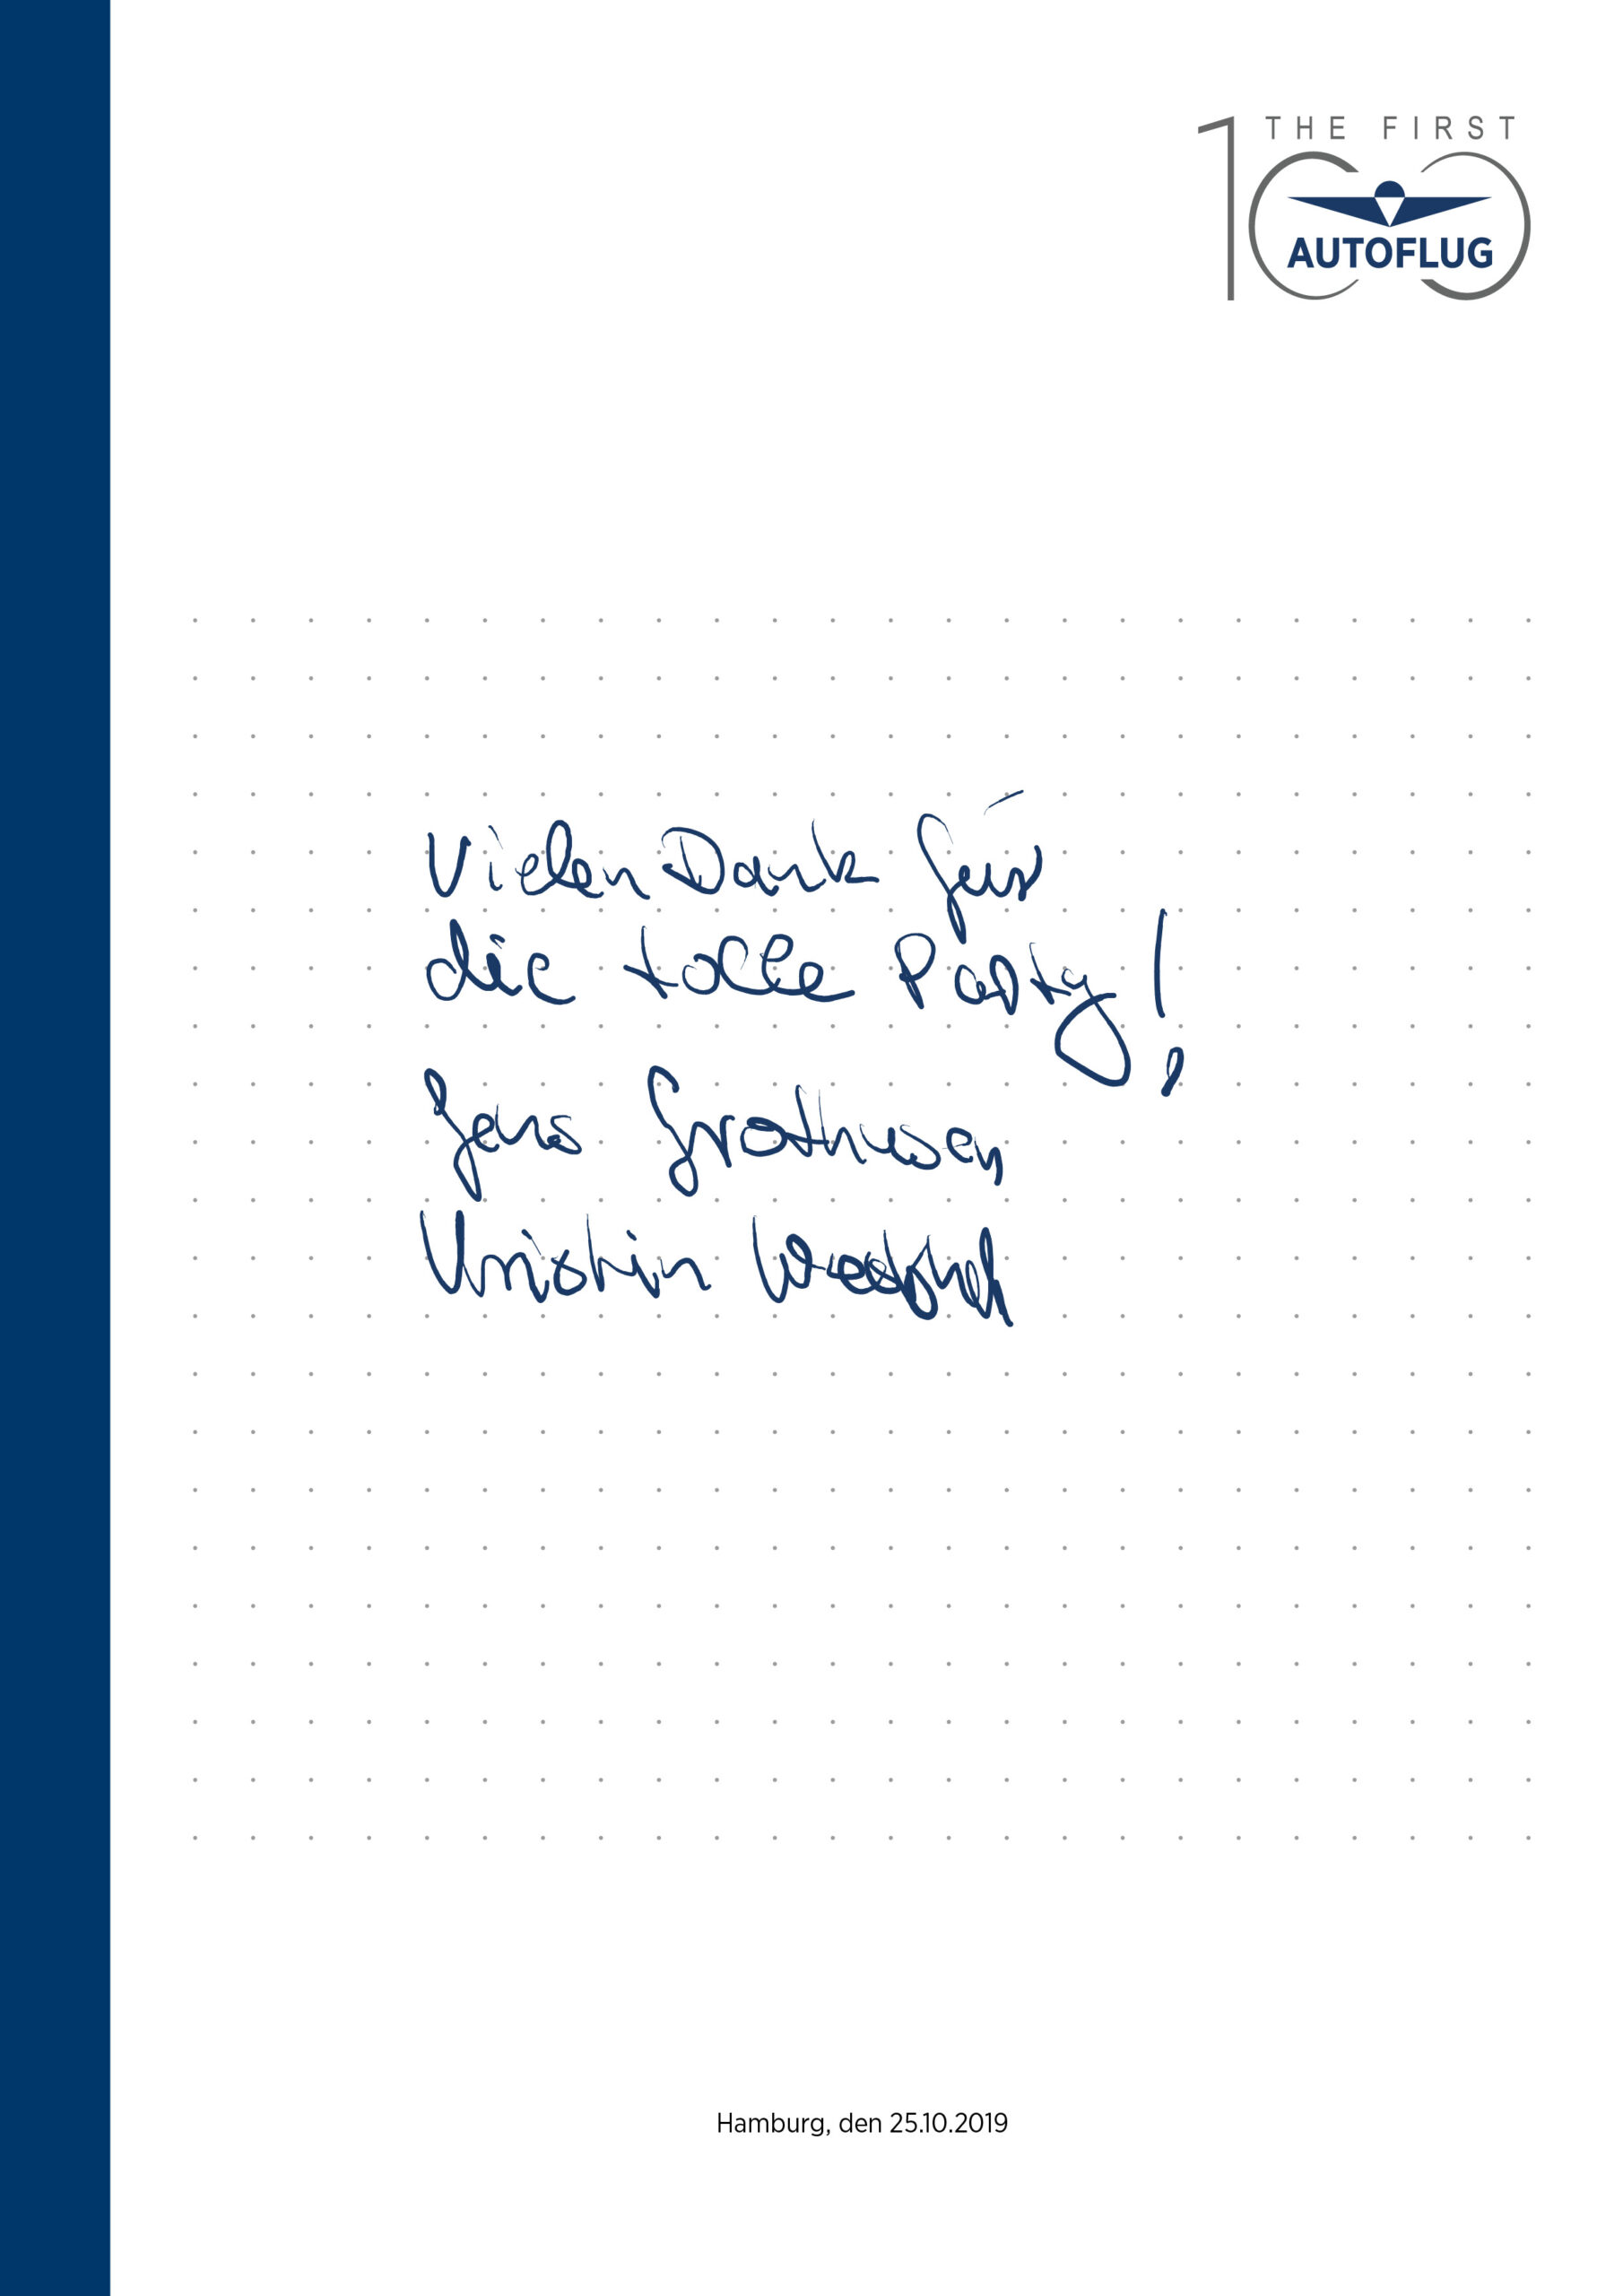 THE FIRST
100
AUTOFLUG
Vielen Dank für
die tolle Party!
Jens Grothusen,
Kristin
Hamburg, den 25.10.2019